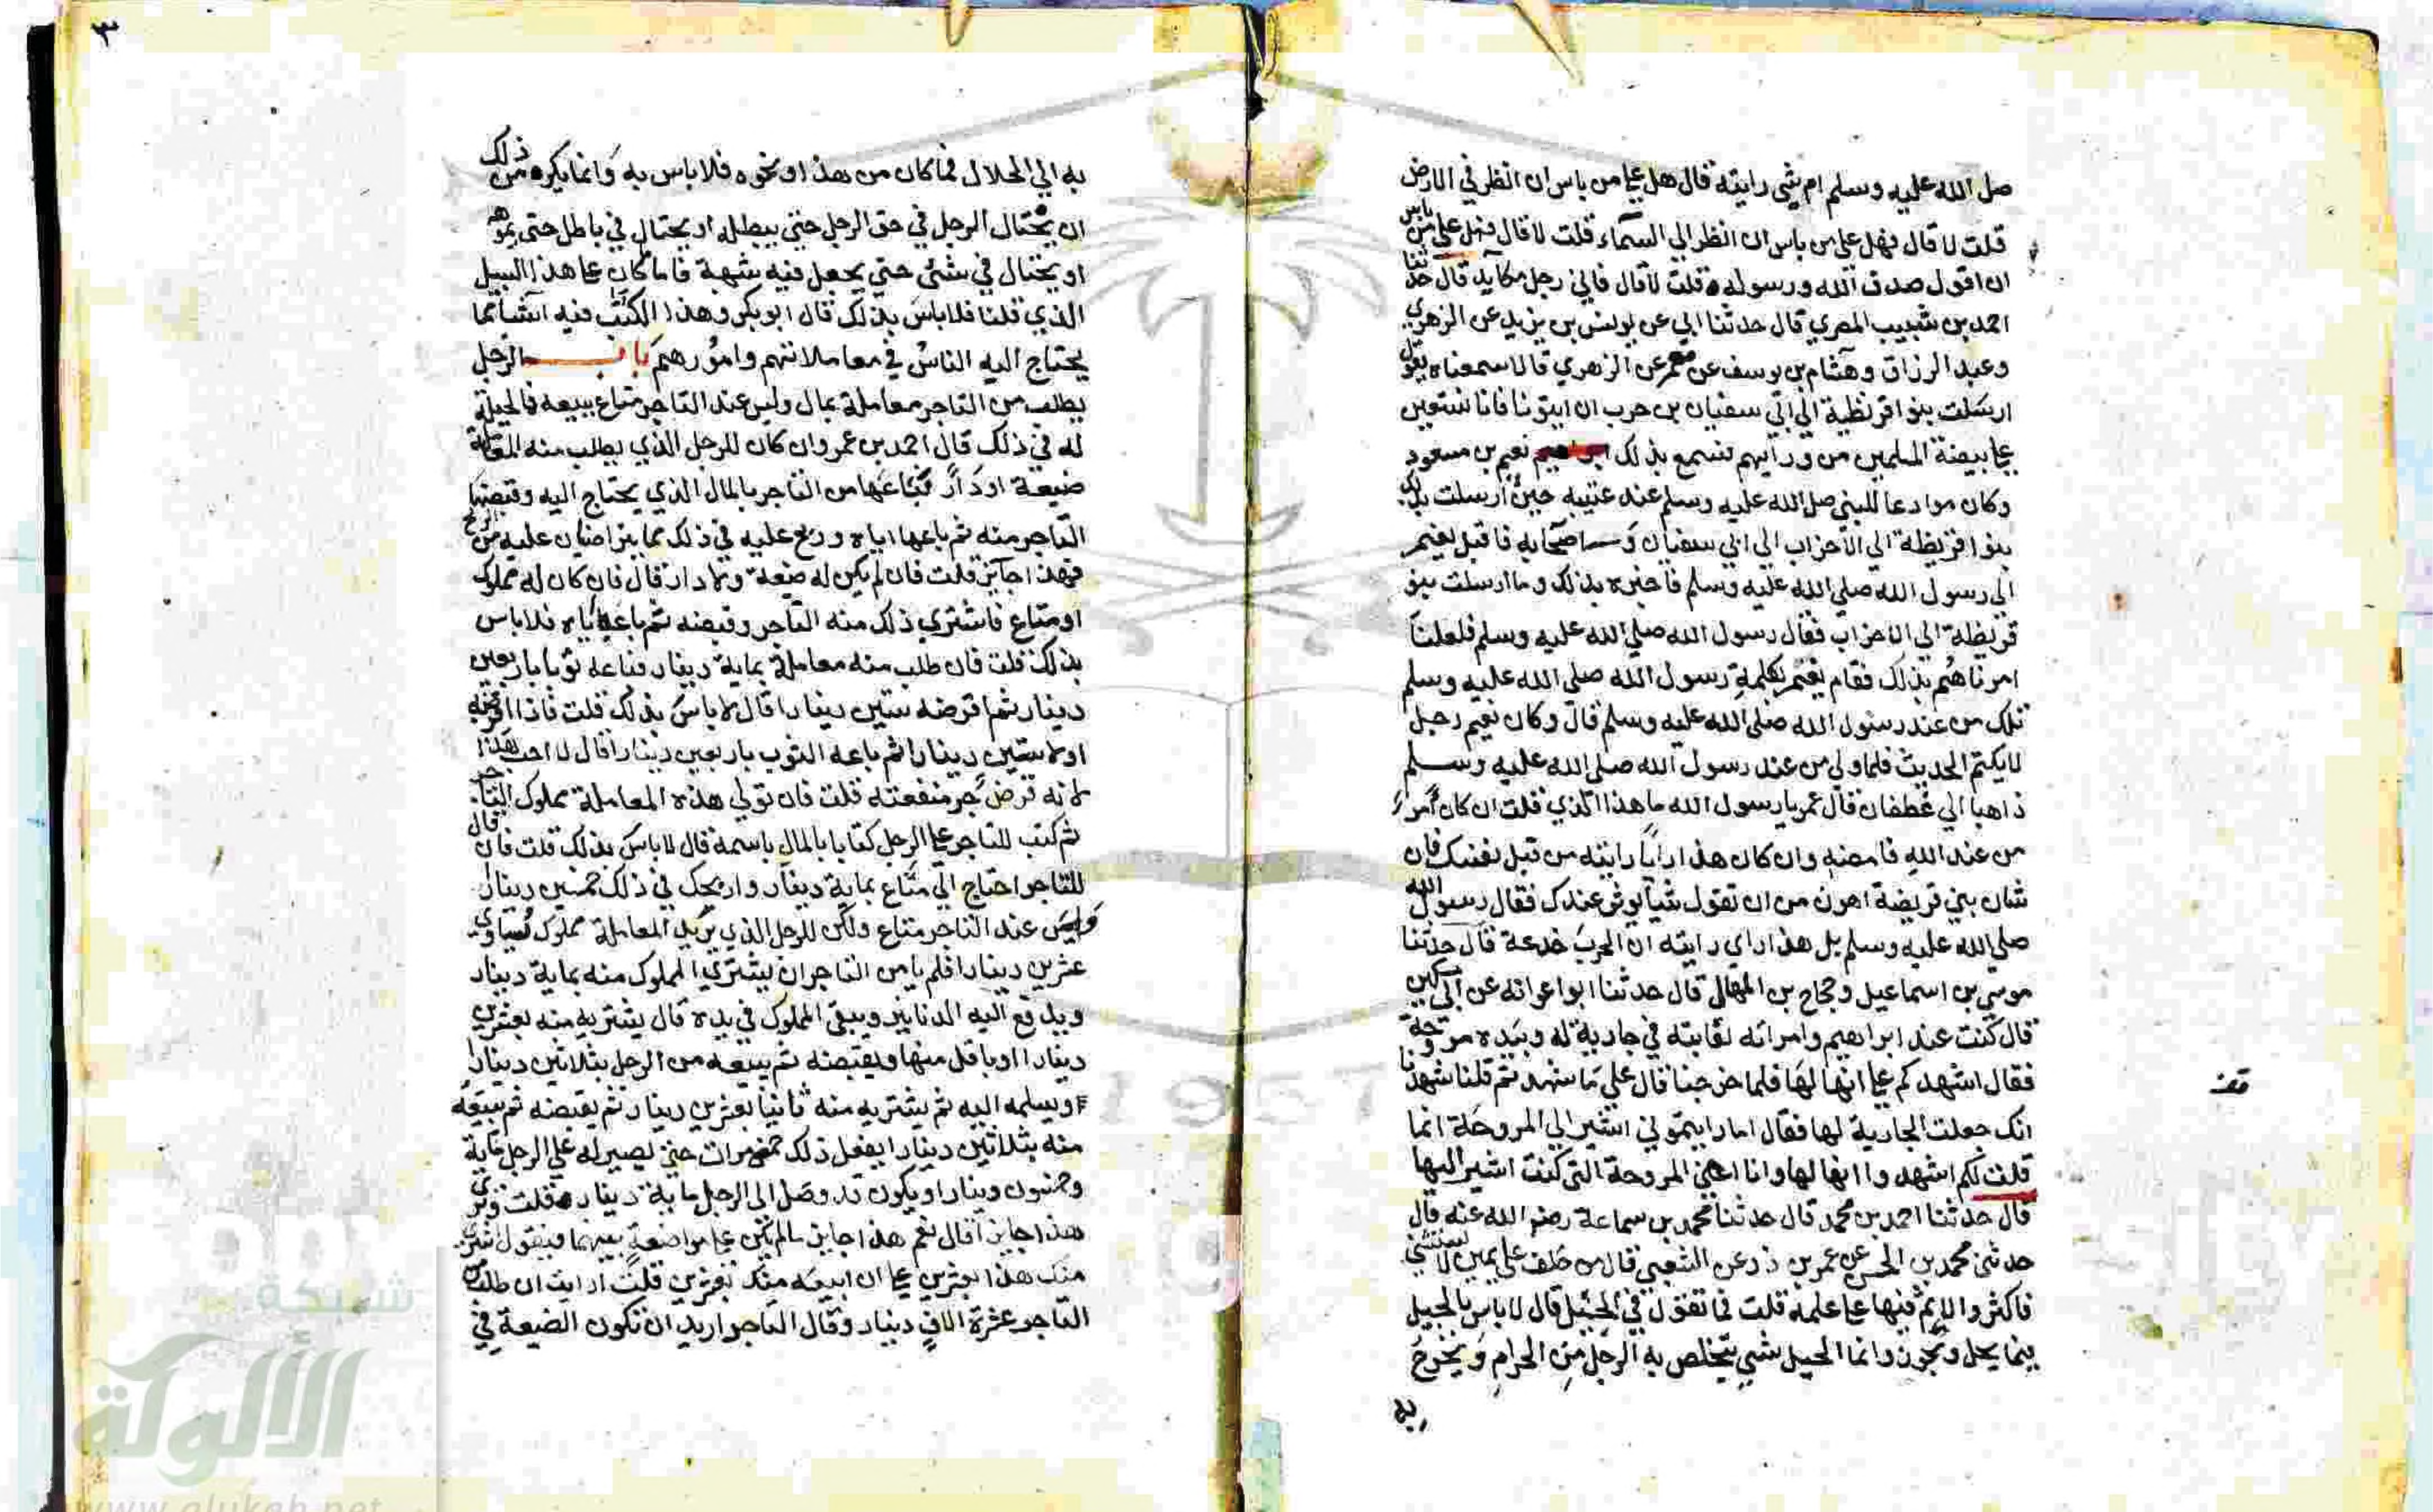 صلى الله عليه وسلم ام شي رايته قال هل علي من باس ان انظر في الارض
قلت لا قال فهل علي من باس ان انظر الي السماء قلت لا قال فهل علي من باس
ان اقول صدق الله ورسوله قلت لا قال فاني رجل مكايد قال حدثنا
احمد بن شبيب المصري قال حدثنا ابي عن يونس بن يزيد عن الزهري
وعبد الرزاق وهشام بن يوسف عن معمر عن الزهري قالا سمعناه يقول
ارسلت بنوا قريظة الي ابي سفيان بن حرب ان ايتونا فانا نستعين
علي بيضة المسلمين من ورايهم فسمع بذلك نعيم بن مسعود
وكان موادعا للنبي صلى الله عليه وسلم عند عتيبه حين ارسلت بذلك
بنوا قريظة الي الاحزاب الي ابي سفيان واصحابه فاقبل نعيم
الي رسول الله صلي الله عليه وسلم فاخبره بذلك وما ارسلت بنو
قريظة الي الاحزاب فقال رسول الله صلي الله عليه وسلم فلعلنا
امرناهم بذلك فقام نعيم بكلمة رسول الله صلي الله عليه وسلم
تلك من عند رسول الله صلي الله عليه وسلم قال وكان نعيم رجل
لا يكتم الحديث فلما ولي من عند رسول الله صلي الله عليه وسلم
ذاهبا الي غطفان قال عمر يا رسول الله ما هذا الذي قلت ان كان امرا
من عند الله فامضه وان كان هذا رايا رايته من قبل نفسك فان
شان بني قريضة اهون من ان تقول شيا يوثر عندك فقال رسول الله
صلي الله عليه وسلم بل هذا راي رايته ان الحرب خدعة قال حدثنا
موسي بن اسماعيل وحجاج بن المنهال قال حدثنا ابوا عوانه عن ابي مسكين
قال كنت عند ابراهيم وامراته تعاتبته في جارية له وبيده مروحة
فقال اشهدكم علي انها لها فلما خرجنا قال علي ما شهدتم قلنا شهدنا
انك جعلت الجارية لها فقال اما رايتموني اشير الي المروحة انما
قلت لكم اشهدوا انها لها وانا اعني المروحة التي كنت اشير اليها
قال حدثنا احمد بن محمد قال حدثنا محمد بن سماعة رضي الله عنه قال
حدثني محمد بن الحسن عن عمر بن ذر عن الشعبي قال من حلف علي يمين لا يستثني
فاكثر والاثم فيها علي علمه قلت فما تقول في الحيل قال لا باس بالحيل
فيما يحل ويجوز وانما الحيل شي يتخلص به الرجل من الحرام ويخرج
به
قف
٣
به الي الحلال فما كان من هذا او نحوه فلا باس به وانما يكره من ذلك
ان يحتال الرجل في حق الرجل حتي يبطله او يحتال في باطل حتي يموهه
او يحتال في شئي حتي يجعل فيه شبهة فاما كان علي هذا السبيل
الذي قلنا فلا باس بذلك قال ابو بكر وهذا الكتب فيه اشيا مما
يحتاج اليه الناس في معاملاتهم وامورهم باب الرجل
يطلب من التاجر معاملة بمال وليس عند التاجر متاع يبيعه فالحيلة
له في ذلك قال احمد بن عمر وان كان للرجل الذي يطلب منه المعاملة
ضيعة او دار فباعها من التاجر بالمال الذي يحتاج اليه وقبضها
التاجر منه ثم باعها اياه وربح عليه في ذلك بما يتراضيان عليه من الربح
فهذا جايز قلت فان لم يكن له ضيعة ولا دار قال فان كان له مملوك
او متاع فاشتري ذلك منه التاجر وقبضه ثم باعه اياه فلا باس
بذلك قلت فان طلب منه معاملة بماية دينار فباعه ثوبا باربعين
دينار ثم اقرضه ستين دينارا قال لا باس بذلك قلت فاذا اقرضه
اولا ستين دينارا ثم باعه الثوب باربعين دينارا قال لا احب هذا
لانه قرض جر منفعته قلت فان تولي هذه المعاملة مملوك التاجر
ثم كتب للتاجر علي الرجل كتابا بالمال باسمه قال لا باس بذلك قلت فان قال
للتاجر احتاج الي متاع بماية دينار واربحك في ذلك خمسين دينار
وليس عند التاجر متاع ولكن للرجل الذي يريد المعاملة مملوك يساوي
عشرين دينارا فلم يامن التاجر ان يشتري المملوك منه بماية دينار
ويدفع اليه الدنانير ويبقي المملوك في يده قال يشتريه منه بعشرين
دينارا او باقل منها ويقبضه ثم يبيعه من الرجل بثلاثين دينارا
ويسلمه اليه ثم يشتريه منه ثانيا بعشرين دينار ثم يقبضه ثم يبيعه
منه بثلاثين دينارا يفعل ذلك خمس مرات حتي يصير له علي الرجل ماية
وخمسون دينارا ويكون قد وصل الي الرجل ماية دينار قلت وتري
هذا جايزا قال نعم هذا جايز ما لم يكن علي مواضعة بينهما فيقول اشتري
منك هذا بعشرين علي ان ابيعه منك بعشرين قلت ارايت ان طلب من
التاجر عشرة الاف دينار وقال التاجر اريد ان تكون الضيعة في
شبكة
الألوكة
www.alukah.net